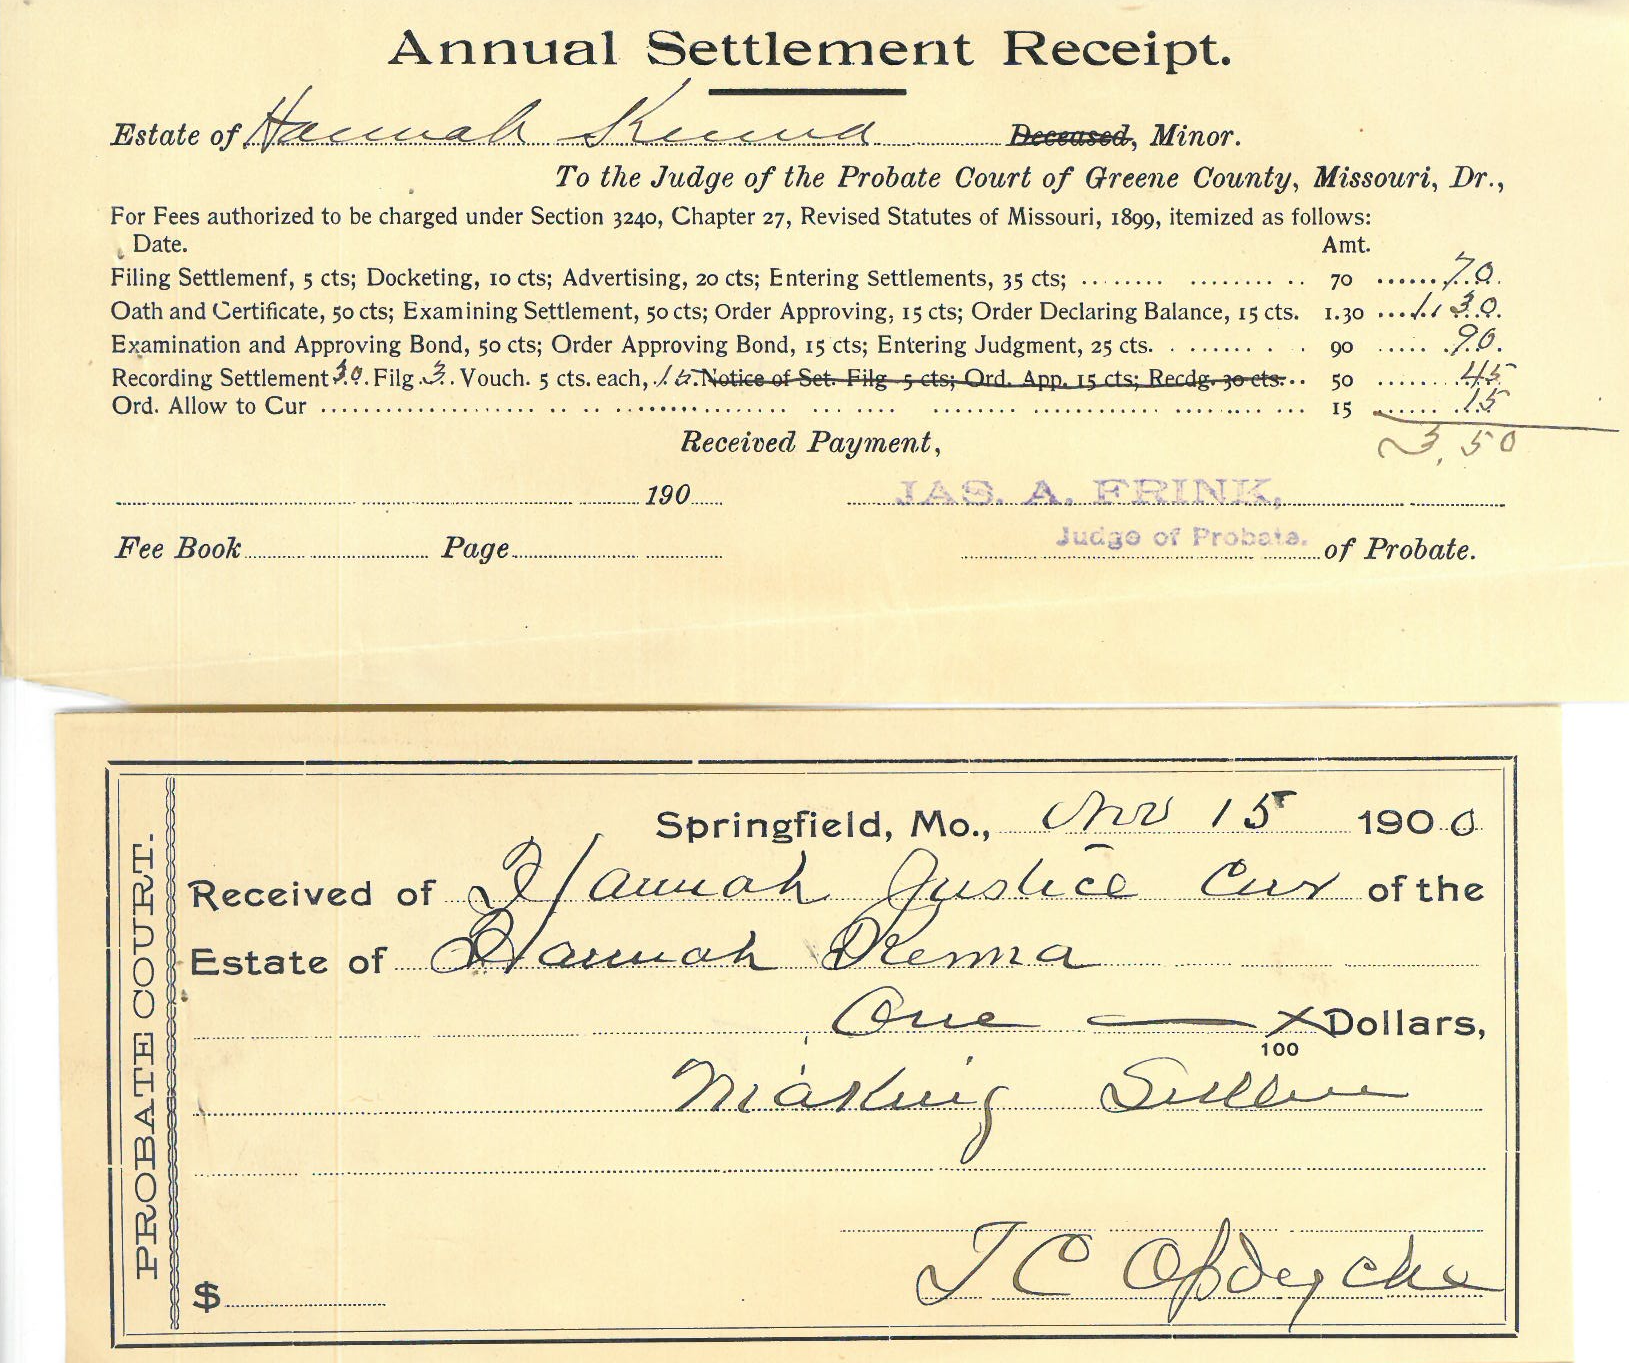 Annual Settlement Receipt.
Estate of Hannah Kenna Deceased, Minor.
To the Judge of the Probate Court of Greene County, Missouri, Dr.,
For Fees authorized to be charged under Section 3240, Chapter 27, Revised Statutes of Missouri, 1899, itemized as follows:
Date. Amt.
Filing Settlement, 5 cts; Docketing, 10 cts; Advertising, 20 cts; Entering Settlements, 35 cts; 70 70
Oath and Certificate, 50 cts; Examining Settlement, 50 cts; Order Approving, 15 cts; Order Declaring Balance, 15 cts. 1.30 1.30
Examination and Approving Bond, 50 cts; Order Approving Bond, 15 cts; Entering Judgment, 25 cts. 90 90
Recording Settlement 30 Filg 3 Vouch. 5 cts. each, 15 Notice of Set. Filg 5 cts; Ord. App. 15 cts; Recdg. 30 cts. 50 45
Ord. Allow to Cur 15 15
3.50
Received Payment,
190 JAS. A. FRINK,
Judge of Probate.
Fee Book Page of Probate.
PROBATE COURT.
Springfield, Mo., Nov 15 1900
Received of Hannah Justice Cur of the
Estate of Hannah Kenna
One — x Dollars,
100
Making Settlem
T C Opdycke
$